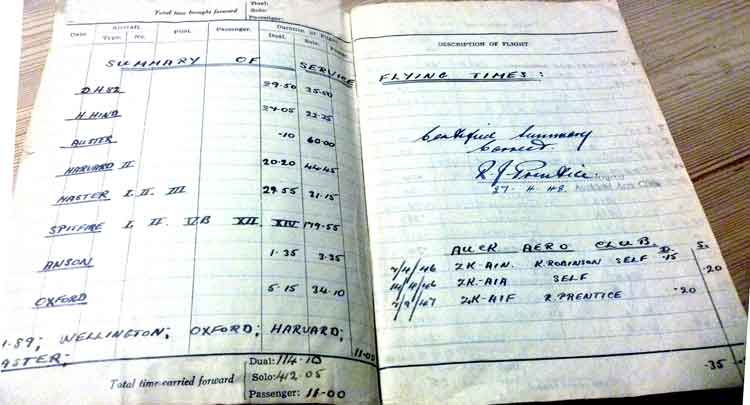 Total time brought forward
Dual:
Solo:
Passenger:
Date
Aircraft.
Type. No.
Pilot.
Passenger.
Duration of Flight
Dual. Solo.
SUMMARY OF SERVICE
D.H.82 39.50 35.50
H. HIND 27.05 22.25
AUSTER -10 60.00
HARVARD II 20.20 44.45
MASTER I. II. III 29.55 21.15
SPITFIRE I. II. VB XII. XIV 179.55
ANSON 1.35 3.35
OXFORD 5.15 34.10
1.89; WELLINGTON; OXFORD; HARVARD;
ASTER; 11-00
Total time carried forward
Dual: 114.10
Solo: 412.05
Passenger: 11-00
DESCRIPTION OF FLIGHT
FLYING TIMES:
Certified Summary
Correct.
R.J. Prentice
Auckland Aero Club
AUCK AERO CLUB. D. S.
7/4/46 ZK-AIN. K.ROBINSON SELF .15
14/4/46 ZK-AIA SELF .20
7/9/47 ZK-AIF R.PRENTICE .20
.35